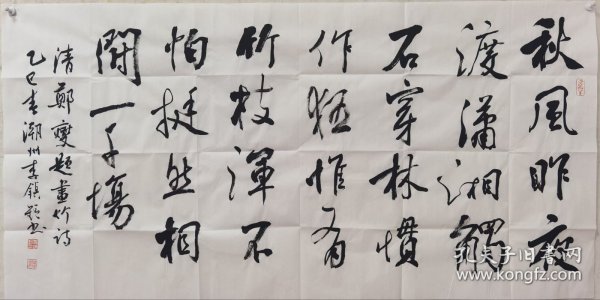 秋风昨夜
渡潇湘觸
石穿林慣
作狂惟有
竹枝渾不
怕挺然相
鬪一千場
清鄭燮題畫竹詩
乙巳春潮州李鎮
孔夫子旧书网
www.kongfz.com